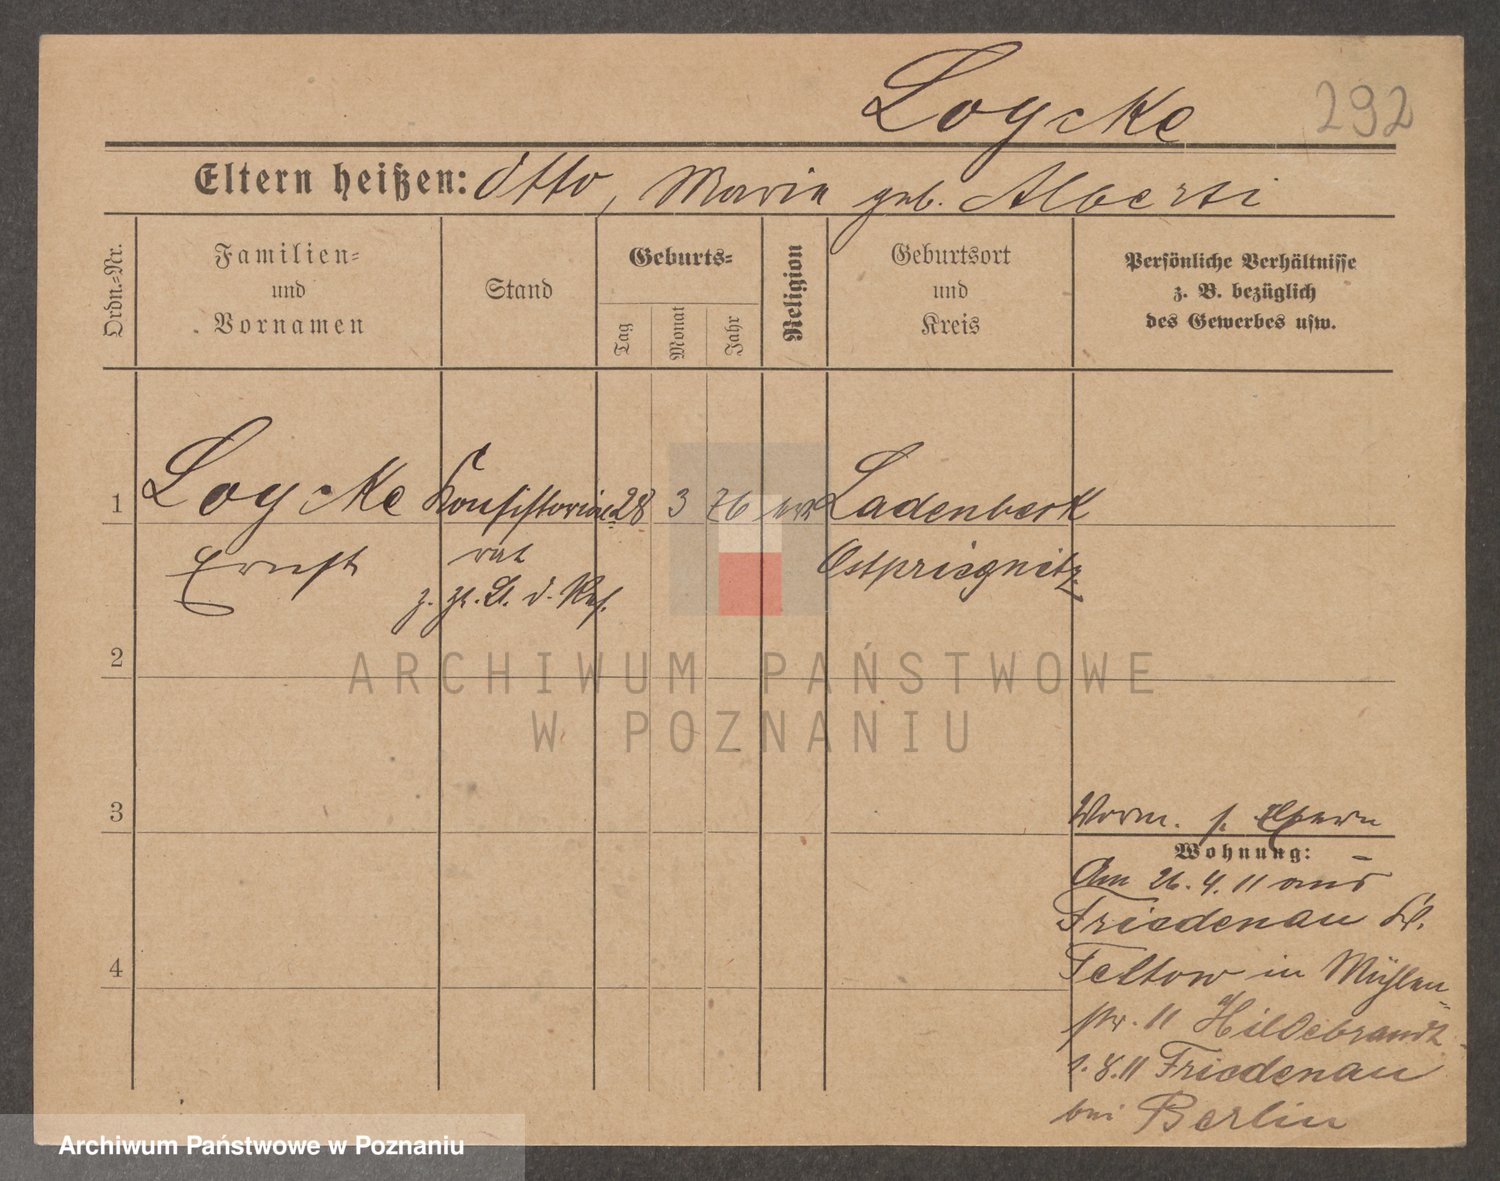 Loycke 292
Eltern heißen: Otto, Maria geb. Alberti
Ordn.=Nr.
Familien=
und
Vornamen
Stand
Geburts=
Tag
Monat
Jahr
Religion
Geburtsort
und
Kreis
Persönliche Verhältnisse
z. B. bezüglich
des Gewerbes usw.
1 Loycke Konsistorial= 28 3 76 Ladenberk
Ernst rat Ostprignitz
z. Zt. Lt. d. Res.
2
ARCHIWUM PAŃSTWOWE
W POZNANIU
3
Worm. s. Eltern
Wohnung:
Am 26. 4. 11 aus
Friedenau Kr.
4
Teltow in Mühlen=
str. 11 Hildebrandt
1. 8. 11 Friedenau
bei Berlin
Archiwum Państwowe w Poznaniu